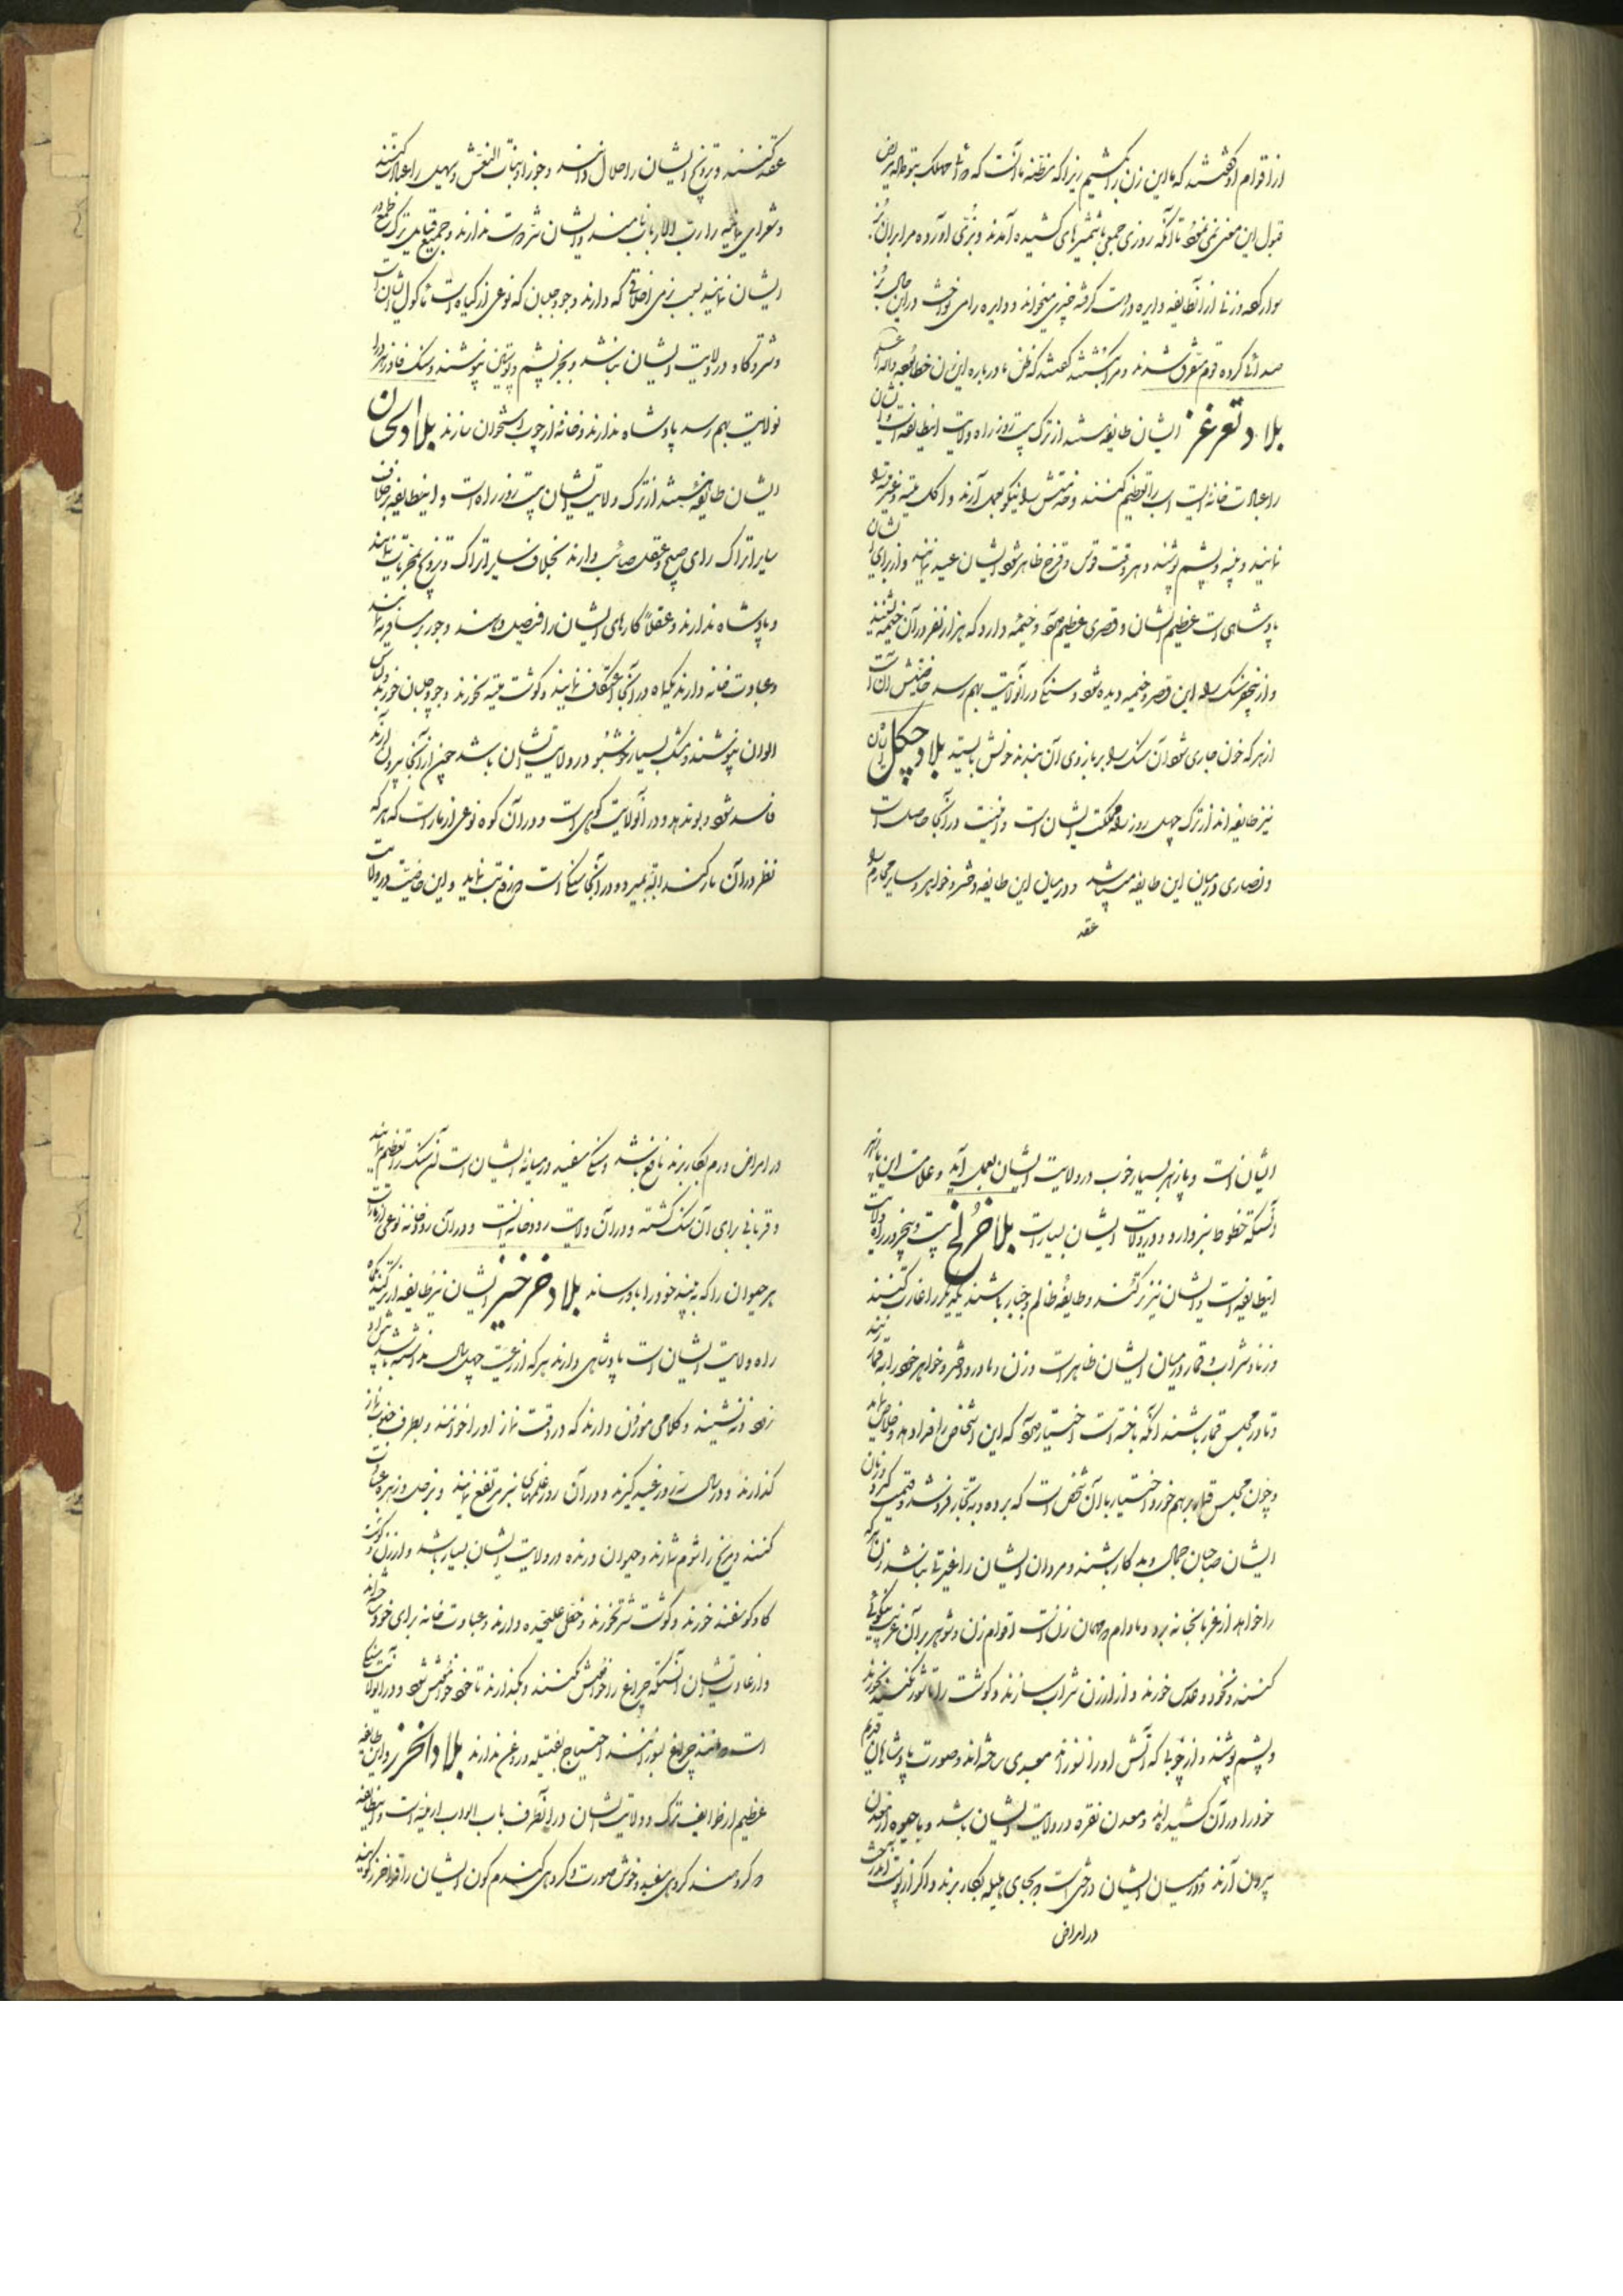 از اقوام او گفتند که ما این زن را بکشیم زیرا که مظنه ما آنست که
قبول این معنی نمی نمود تا آنکه روزی جمعی با شمشیرهای کشیده آمدند و بزی آورده مرا بر آن بز
سوار کرده و زنی از آن طایفه دایره در دست گرفته چیزی میخواند و دایره را می نواخت در این حال بز
صدائی کرده قوم متفرق شدند و مرا گفتند که ظن ما درباره این زن خطا بود والله اعلم
بلاد تغرغز ایشان طایفه از ترک بیست روزه راه ولایت این طایفه است و ایشان
را عبادت خانه نیست اسب را تعظیم کنند و خدمتش را نیکو بعمل آرند و اکل میته و غیر میته
نمایند و پنبه و پشم پوشند و هر وقت قوس و قزح ظاهر شود ایشان عید نمایند و از برای ایشان
پادشاهی است عظیم الشان و قصری عظیم دارد و خیمه دارد که هزار نفر در آن خیمه نشینند
و از پنج فرسنگ راه این قصر و خیمه دیده شود و سنگی در آن ولایت بهم رسد خاصیتش آن است
از هر که خون جاری شود آن سنگ را بر بازوی آن بندند خونش بایستد بلاد چگل ایشان
نیز طایفه اند از ترک چهل روزه راه مملکت ایشان است و امنیت در آنجا حاصل است
و نصاری در میان این طایفه میباشد و در میان این طایفه دختر و خواهر و سایر محارم را
عقد
عقد کنند و تزویج ایشان را حلال دانند و جوزا و بنات النعش و سهیل را عبادت کنند
و شعرای یمانیه را رب الارباب نامند و ایشان شرارت ندارند و جمیع قبایل ترک طمع در
ایشان نمایند بسبب نرمی اخلاقی که دارند و جو و جلبان که نوعی از گیاه است ماکول ایشان است
و شتر و گاو در ولایت ایشان نباشد و بجز پشم و پوستین نپوشند و سنگ فادزهر در آن
ولایت بهم رسد پادشاه ندارند و خانه از چوب و استخوان سازند بلاد
ایشان طایفه هستند از ترک ولایت ایشان بیست روز راه است و این طایفه بر خلاف
سایر اتراک رای صحیح و عقل صائب دارند بخلاف سایر اتراک و تزویج بمقررات نمایند
و پادشاه ندارند و عقلا کارهای ایشان را فیصل دهند و جور بر مسافر نمایند
و عبادت خانه دارند یکماه در آنجا اعتکاف نمایند و گوشت میته نخورند و جو و جلبان خورند و لباس
الوان نپوشند و مشک بسیار خوشبو در ولایت ایشان باشد چون از آنجا بیرون آرند
فاسد شود و بو ندهد و در آن ولایت کوهی است و در آن کوه نوعی از مار است که هر که
نظر در آن مار کند البته بمیرد و در آنجا سنگی است که رفع تب نماید و این خاصیت در ولایت
ایشان است و پازهر بسیار خوب در ولایت ایشان بعمل آید و علامت این پازهر
آنستکه خطوط سبز دارد و در ولایت ایشان بسیار است بلاد خرلخ بیست و پنج روز راه ولایت
این طایفه است و ایشان نیز ترکند و طایفه ظالم و جبار باشند یکدیگر را غارت کنند
و زنا و شراب و قمار در میان ایشان ظاهر است و زن و مادر و دختر و خواهر خود را به قمار
و تا در مجلس قمار باشند آنکه باخته است اختیار دارد که این اشخاص را فدا دهد و خلاص نماید
و چون مجلس قمار بر هم خورد اختیار با آن شخص است که برده و به تجار فروشد و قیمت گیرد و زنان
ایشان صاحبان جمال و بدکار باشند و مردان ایشان را غیرتی نباشد زن هر که
را خواهد از غربا بخانه برد و مادام که مهمان زن است اقوام زن و شوهر بر آن غریب نیکوئی
کنند و نخود و عدس خورند و از ارزن شراب سازند و گوشت را تا شور نکنند نخورند
و پشم پوشند و از چوبی که آتش او را نسوزاند معبدی ساخته اند و صورت پادشاهان قدیم
خود را در آن کشیده اند و معدن نقره در ولایت ایشان باشد و با جیوه از معدن
بیرون آرند و در میان ایشان درختی است که بجای هلیله بکار برند و اگر از پوست آن درخت
در امراض
در امراض ورم بکار برند نافع باشد و سنگی سفید در میانه ایشان است آن سنگ را تعظیم نمایند
و قربانی برای آن سنگ کشند و در آن ولایت رودخانه ایست و در آن رودخانه نوعی از مار است
هر حیوان را که بیند خود را با او رساند بلاد خرخیز ایشان نیز طایفه از ترکند یکماه
راه ولایت ایشان است پادشاهی دارند هر که از رعیت چهل سال نداشته باشد پیش او
نرود و ننشیند و کلامی موزون دارند که در وقت نماز او را خوانند و بطرف جنوب نماز
گذارند و در سال سه روز عید گیرند و در آن روز علمهای سبز مرتفع نمایند و بزحل و زهره عبادت
کنند و مریخ را شوم شمارند و حیوان درنده در ولایت ایشان بسیار باشد و ارزن و گوشت
گاو و گوسفند خورند و گوشت شتر نخورند و خطی علیحده دارند و عبادت خانه برای خود ساخته اند
و از عادت ایشان آنستکه چراغ را خاموش نکنند و بگذارند تا خود خاموش شود و در آن ولایت سنگی
است مانند چراغ بسوزانند احتیاج بفتیله و روغن ندارند بلاد الخزر و این طایفه
عظیم از طوایف ترک و ولایت ایشان در آن طرف باب الابواب ارمنیه است و این طایفه
دو گروهند گروهی سفید و خوش صورت و گروهی گندم گون ایشان را قراخزر گویند